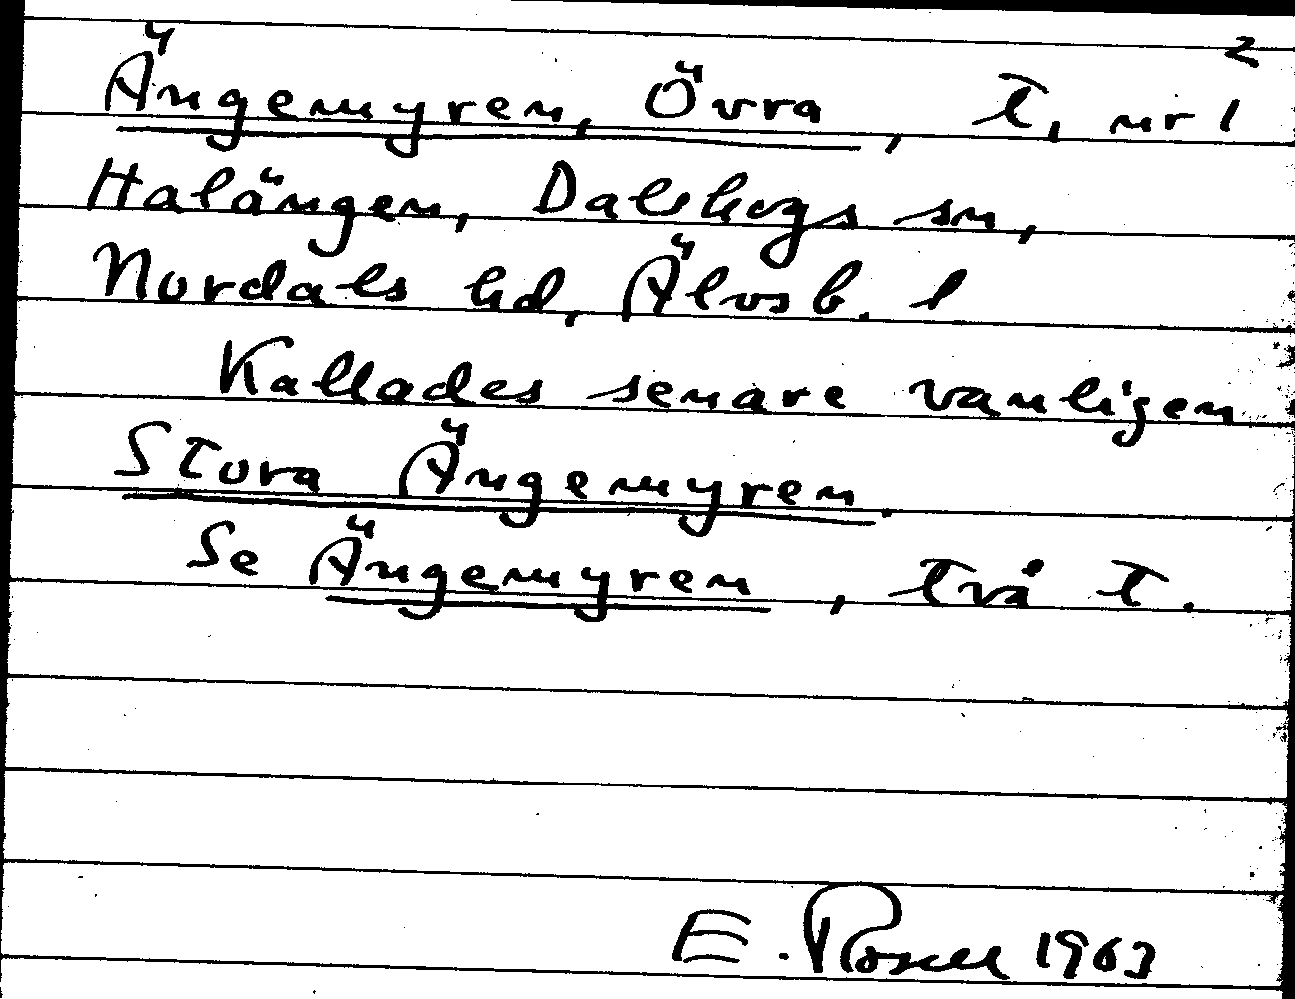 2
Ängemyren, Övra, t, nr 1
Halängen, Dalskogs sn,
Nordals hd, Älvsb. l
Kallades senare vanligen
Stora Ängemyren.
Se Ängemyren, två t.
E. Rosell 1963